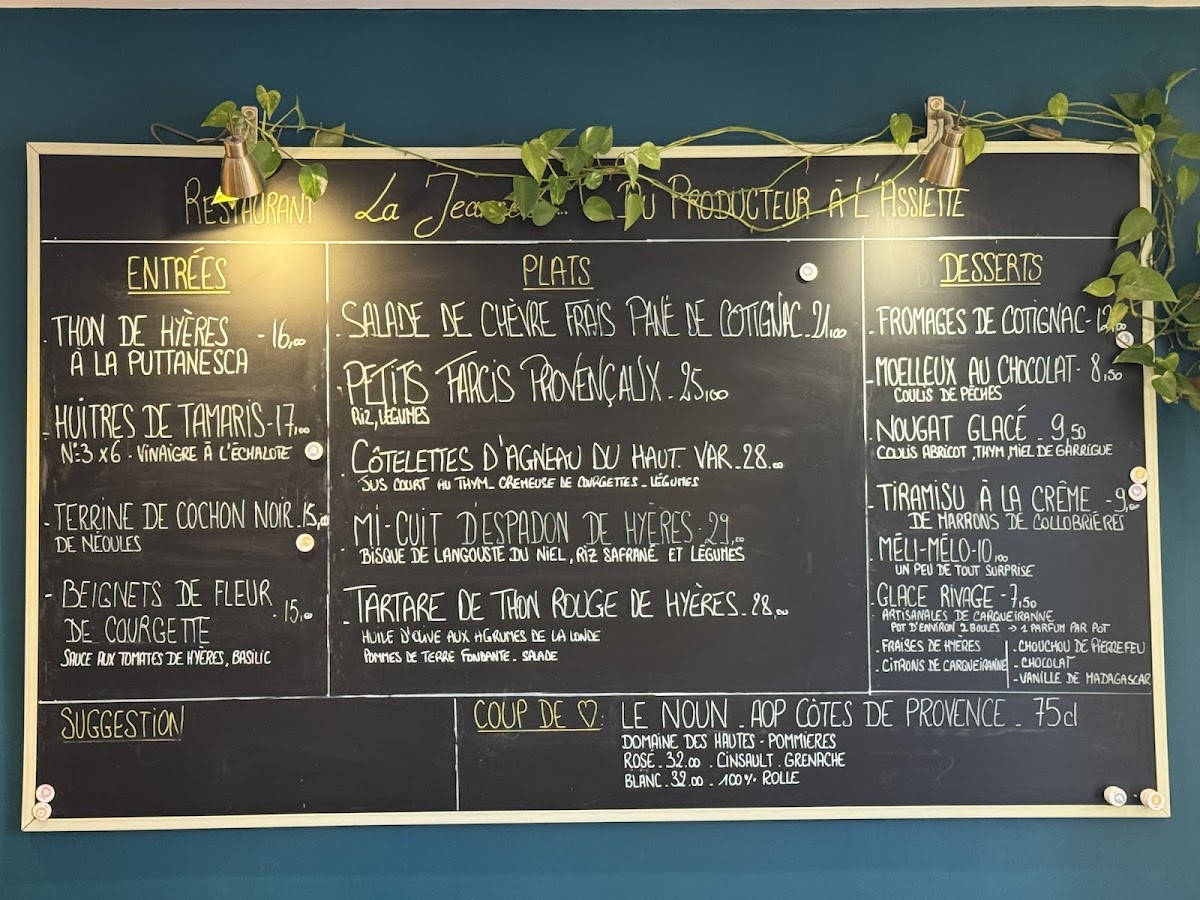 RESTAURANT La DU PRODUCTEUR À L'ASSIETTE
ENTRÉES
- THON DE HYÈRES - 16,00
À LA PUTTANESCA
- HUITRES DE TAMARIS - 17,00
N°3 x 6 - VINAIGRE À L'ÉCHALOTE
- TERRINE DE COCHON NOIR . 15,00
DE NÉOULES
- BEIGNETS DE FLEUR
DE COURGETTE - 15,00
SAUCE AUX TOMATES DE HYÈRES, BASILIC
PLATS
- SALADE DE CHÈVRE FRAIS PANÉ DE COTIGNAC - 21,00
- PETITS FARCIS PROVENÇAUX - 25,00
RIZ, LÉGUMES
- CÔTELETTES D'AGNEAU DU HAUT VAR - 28.00
JUS COURT AU THYM - CREMEUSE DE COURGETTES - LÉGUMES
- MI-CUIT D'ESPADON DE HYÈRES - 29,00
BISQUE DE LANGOUSTE DU NIEL, RIZ SAFRANÉ ET LÉGUMES
- TARTARE DE THON ROUGE DE HYÈRES - 28,00
HUILE D'OLIVE AUX AGRUMES DE LA LONDE
POMMES DE TERRE FONDANTE - SALADE
DESSERTS
- FROMAGES DE COTIGNAC - 12,00
- MOELLEUX AU CHOCOLAT - 8,50
COULIS DE PÊCHES
- NOUGAT GLACÉ - 9,50
COULIS ABRICOT, THYM, MIEL DE GARRIGUE
- TIRAMISU À LA CRÊME - 9,
DE MARRONS DE COLLOBRIÈRES
- MÉLI-MÉLO - 10,00
UN PEU DE TOUT SURPRISE
- GLACE RIVAGE - 7,50
ARTISANALES DE CARQUEIRANNE
POT D'ENVIRON 2 BOULES → 1 PARFUM PAR POT
- FRAISES DE HYÈRES
- CITRONS DE CARQUEIRANNE
- CHOUCHOU DE PIERREFEU
- CHOCOLAT
- VANILLE DE MADAGASCAR
SUGGESTION
COUP DE ♡: LE NOUN - AOP CÔTES DE PROVENCE - 75cl
DOMAINE DES HAUTES - POMMIERES
ROSE - 32.00 - CINSAULT . GRENACHE
BLANC - 32.00 - 100% ROLLE